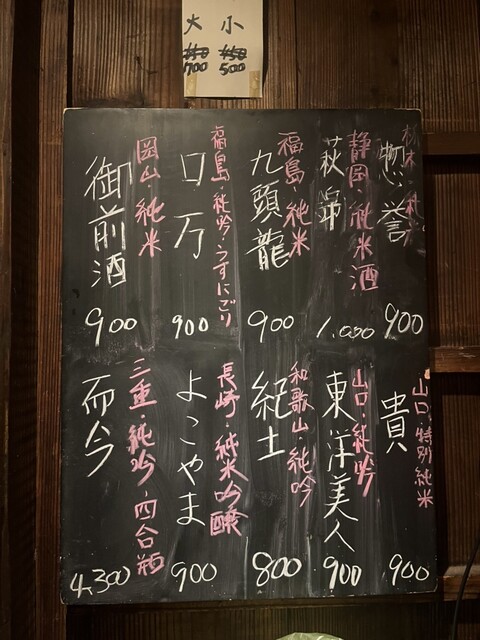 大 小
700 500
栃木・純米
惣誉
900
静岡・純米酒
萩錦
1,000
福島・純米
九頭龍
900
福島・純吟・うすにごり
ロ万
900
岡山・純米
御前酒
900
山口・特別純米
貴
900
山口・純吟
東洋美人
900
和歌山・純吟
紀土
800
長崎・純米吟醸
よこやま
900
三重・純吟・四合瓶
而今
4,300